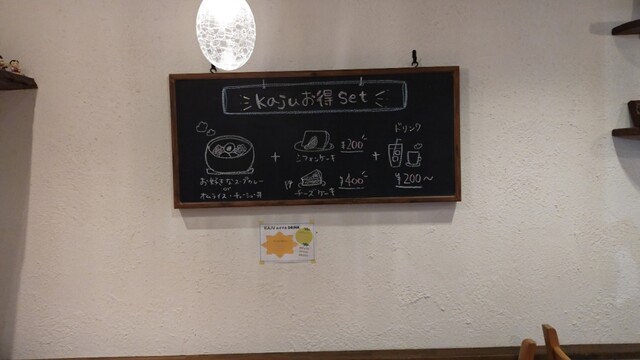 kajuお得set
お好きなスープカレー
or
オムライス・チャーシュー丼
+
シフォンケーキ ¥200
チーズケーキ ¥400
+
ドリンク
¥200～